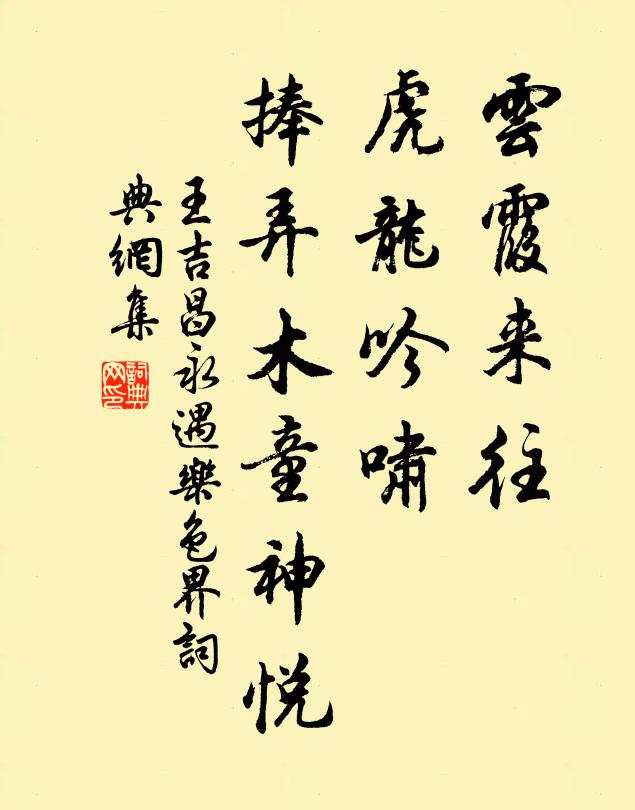 雲霞来往
虎龍吟嘯
捧弄木童神悅
王吉昌永遇樂色界詞
典網集
詞典网印